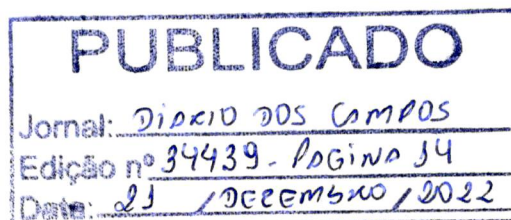 PUBLICADO
Jornal: DIARIO DOS CAMPOS
Edição nº 34439 - PAGINA 14
Data: 21 / DEZEMBRO / 2022